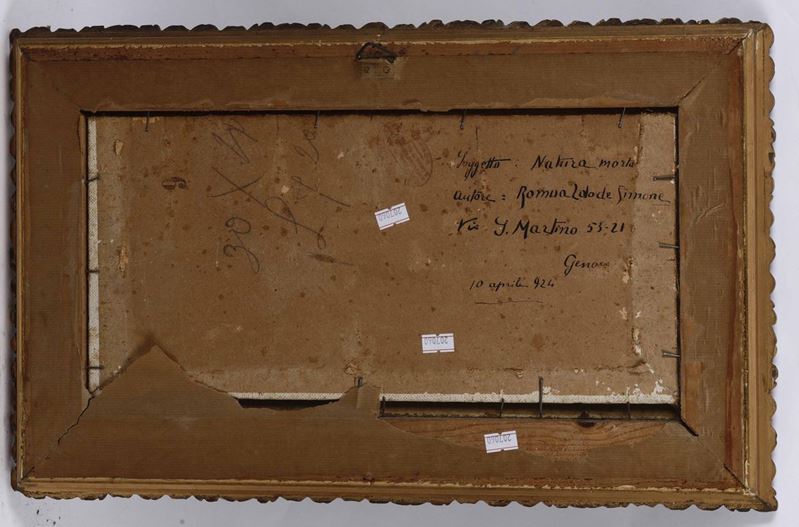 Soggetto : Natura morta
autore : Romualdo de Simone
Via S. Martino 55-21
Genova
10 aprile 924
30 X
9
207040
207040
207040